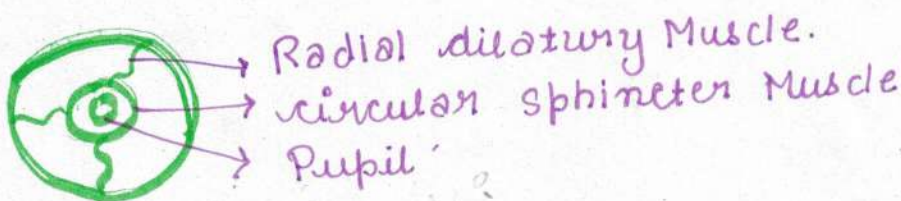 Radial dilatury Muscle.
circular sphincter Muscle
Pupil